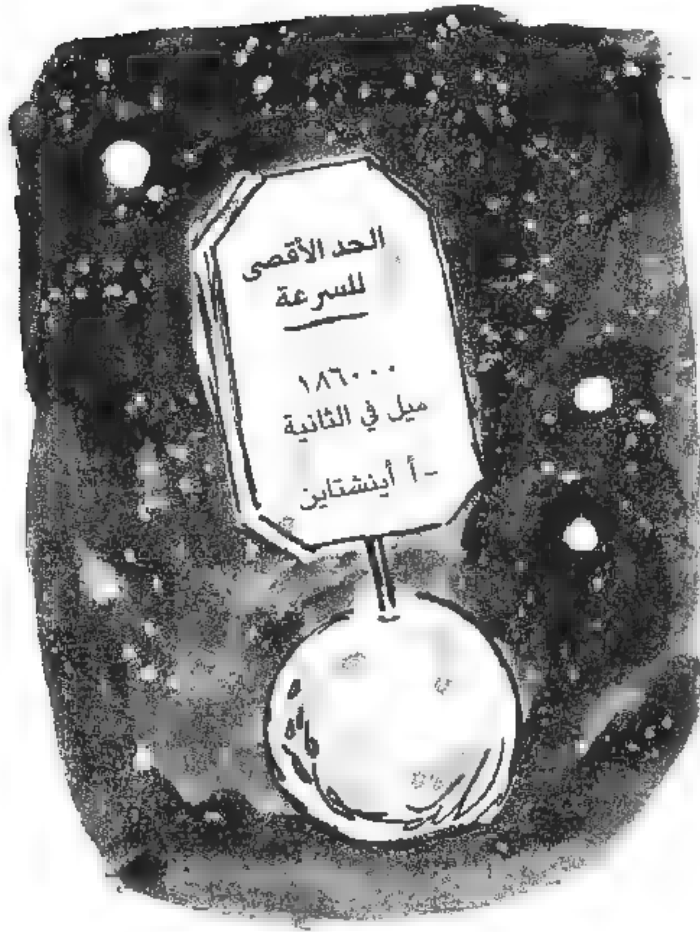 الحد الأقصى
للسرعة
١٨٦٠٠٠
ميل في الثانية
- أ أينشتاين -